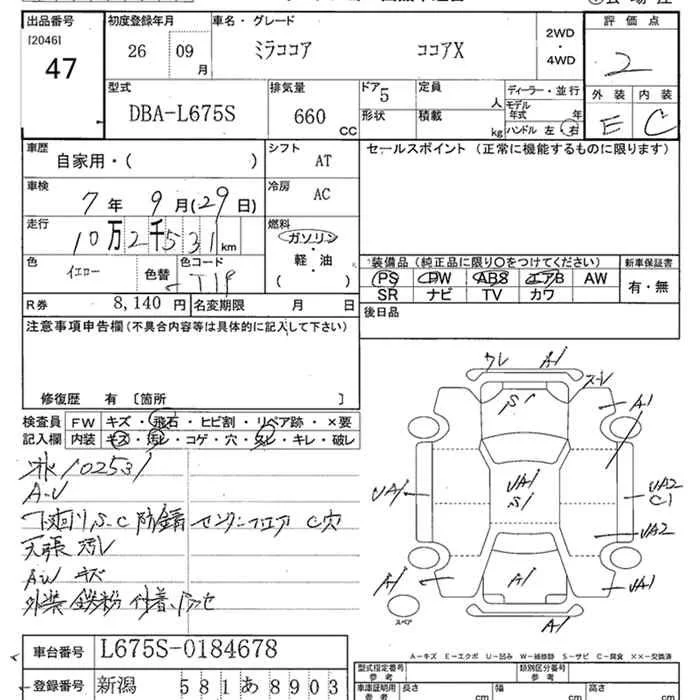 出品番号 初度登録年月 車名・グレード 2WD・4WD 評価点
[2046] 47 26 09月 ミラココア ココアX 2
型式 排気量 ドア 定員 ディーラー・並行 外装 内装
DBA-L675S 660 CC 5 人 モデル年式 年 E C
形状 積載 kg ハンドル 左・右
車歴 シフト セールスポイント (正常に機能するものに限ります)
自家用・( ) AT
車検 冷房
7年 9月(29日) AC
走行 燃料
10万2千531km ガソリン・軽・油
色 色コード ( ) 装備品 (純正品に限り○をつけてください) 新車保証書
イエロー 色替 PS PW ABS エアB AW 有・無
SR ナビ TV カワ
R券 8,140円 名変期限 月 日 後日品
注意事項申告欄 (不具合内容等は具体的に記入して下さい)
修復歴 有 [箇所 ]
検査員 FW キズ・飛石・ヒビ割・リペア跡・×要
記入欄 内装 キズ・汚レ・コゲ・穴・スレ・キレ・破レ
102531
A-U
下廻りS-C 防錆 センターフロア C穴
天張 汚レ
AW キズ
外装 鉄粉 付着
ワレ A1
スレ
S1 A1
UA1 UA1 UA2
S1 C1
UA2
A1 A1 UA1
スペア A1
A-キズ E-エクボ U-凹み W-補修跡 S-サビ C-腐食 XX-交換済
車台番号 L675S-0184678 型式指定番号 参考 類別区分番号 参考
登録番号 新潟 581 あ 8903 車庫証明用 参考 長さ cm 幅 cm 高さ cm